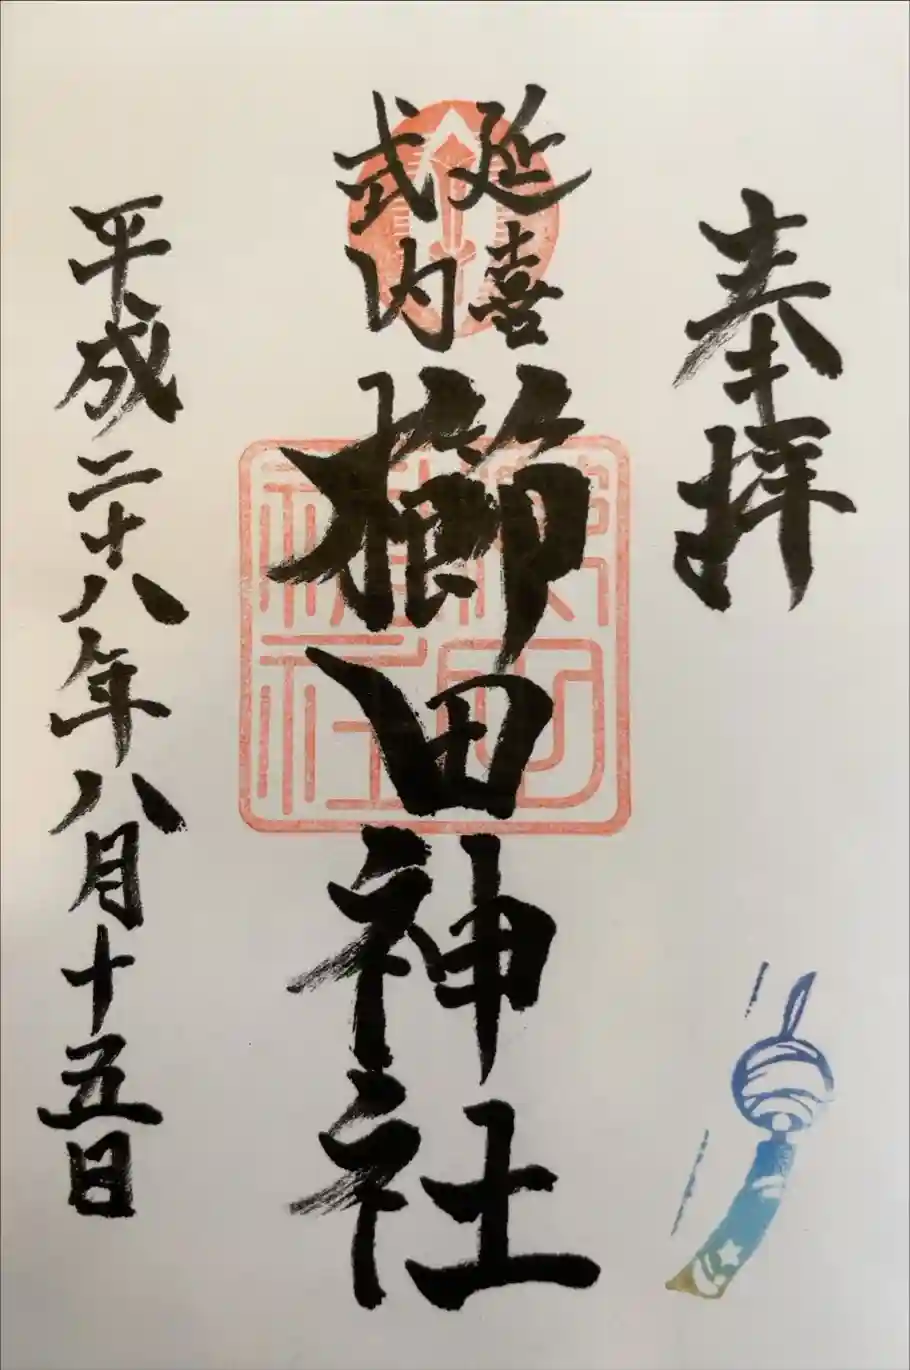 奉拝
延喜
式内
櫛田神社
櫛田
神社
平成二十八年八月十五日